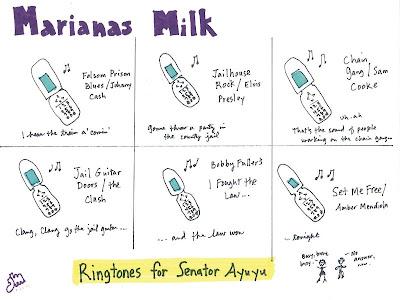 Marianas Milk
Folsom Prison
Blues/Johnny
Cash
I hear the train a' comin'
Jailhouse
Rock/Elvis
Presley
gonna throw a party in
the county jail
Chain
gang/Sam
Cooke
uh-ah
That's the sound of people
working on the chain gang...
Jail Guitar
Doors/the
Clash
Clang, Clang go the jail guitar...
Bobby Fuller's
I Fought the
Law...
...and the law won
Set Me Free/
Amber Mendiola
...tonight
No
answer,
now...
Ringtones for Senator Ayuyu